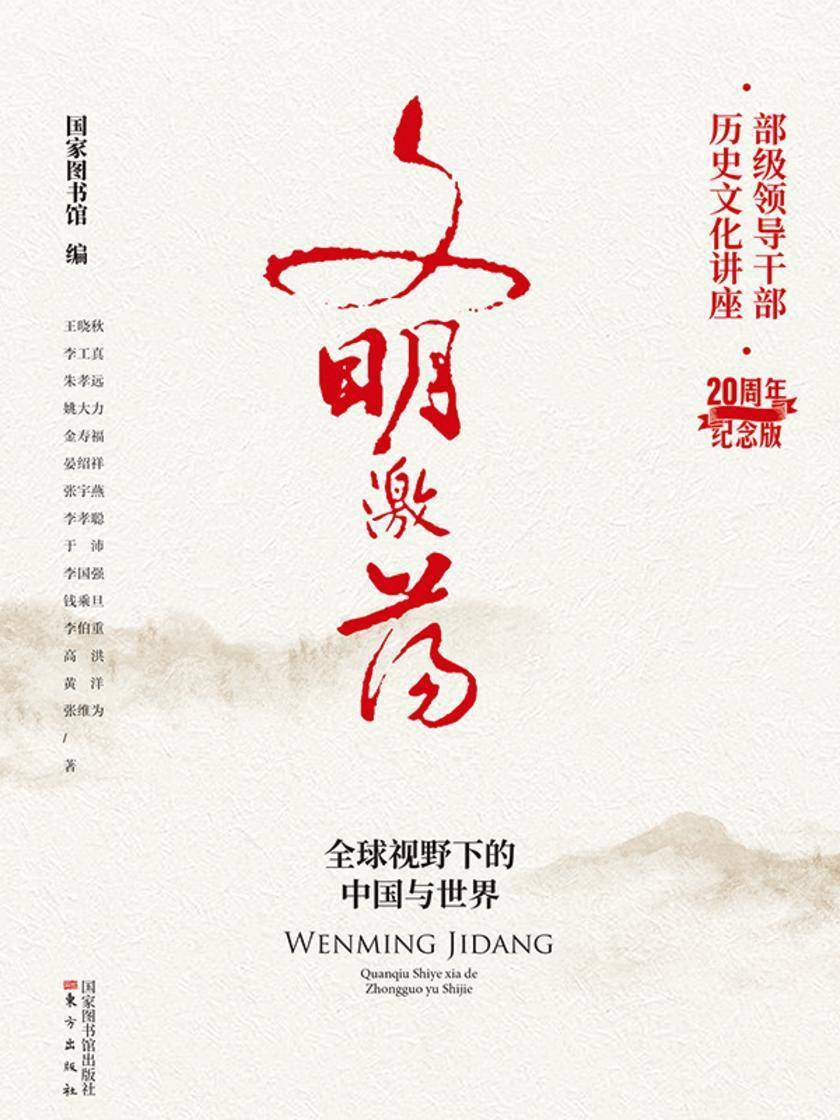 部级领导干部
历史文化讲座
20周年
纪念版
文明激荡
国家图书馆 编
王晓秋
李工真
朱孝远
姚大力
金寿福
晏绍祥
张宇燕
李孝聪
于 沛
李国强
钱乘旦
李伯重
高 洪
黄 洋
张维为
/
著
全球视野下的
中国与世界
WENMING JIDANG
Quanqiu Shiye xia de
Zhongguo yu Shijie
国家图书馆出版社
東方出版社